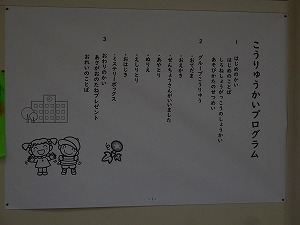 こうりゅうかいプログラム
1 はじめのかい
はじめのことば
しろねしょうがっこうのしょうかい
あそびかたのせつめい
2 グループこうりゅう
・おてだま
・おえかき
・せんちょうさんがいいました
・あやとり
・ぬりえ
・えしりとり
・おはじき
・ミステリーボックス
3 おわりのかい
あさがおのたねプレゼント
おれいのことば